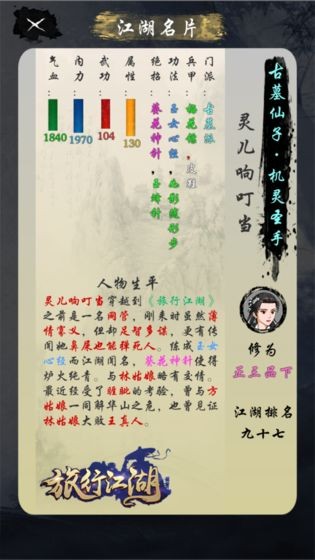 江湖名片
古墓仙子·机灵圣手
灵儿响叮当
修为
正三品下
江湖排名
九十七
门派：古墓派
兵甲：梅花镖，皮鞋
功法：玉女心经，如影随形步
绝招：葵花神针，玉蜂针
属性：130
武功：104
内力：1970
气血：1840
人物生平
灵儿响叮当穿越到《旅行江湖》
之前是一名网管，刚来时虽然薄
情寡义，但却足智多谋，更有传
闻她鼻屎也能弹死人。练成玉女
心经而江湖闻名，葵花神针使得
炉火纯青。与林姑娘略有交情。
最近经受了的考验，曾与方
姑娘一同解华山之危，也曾见证
林姑娘大败王真人。
旅行江湖